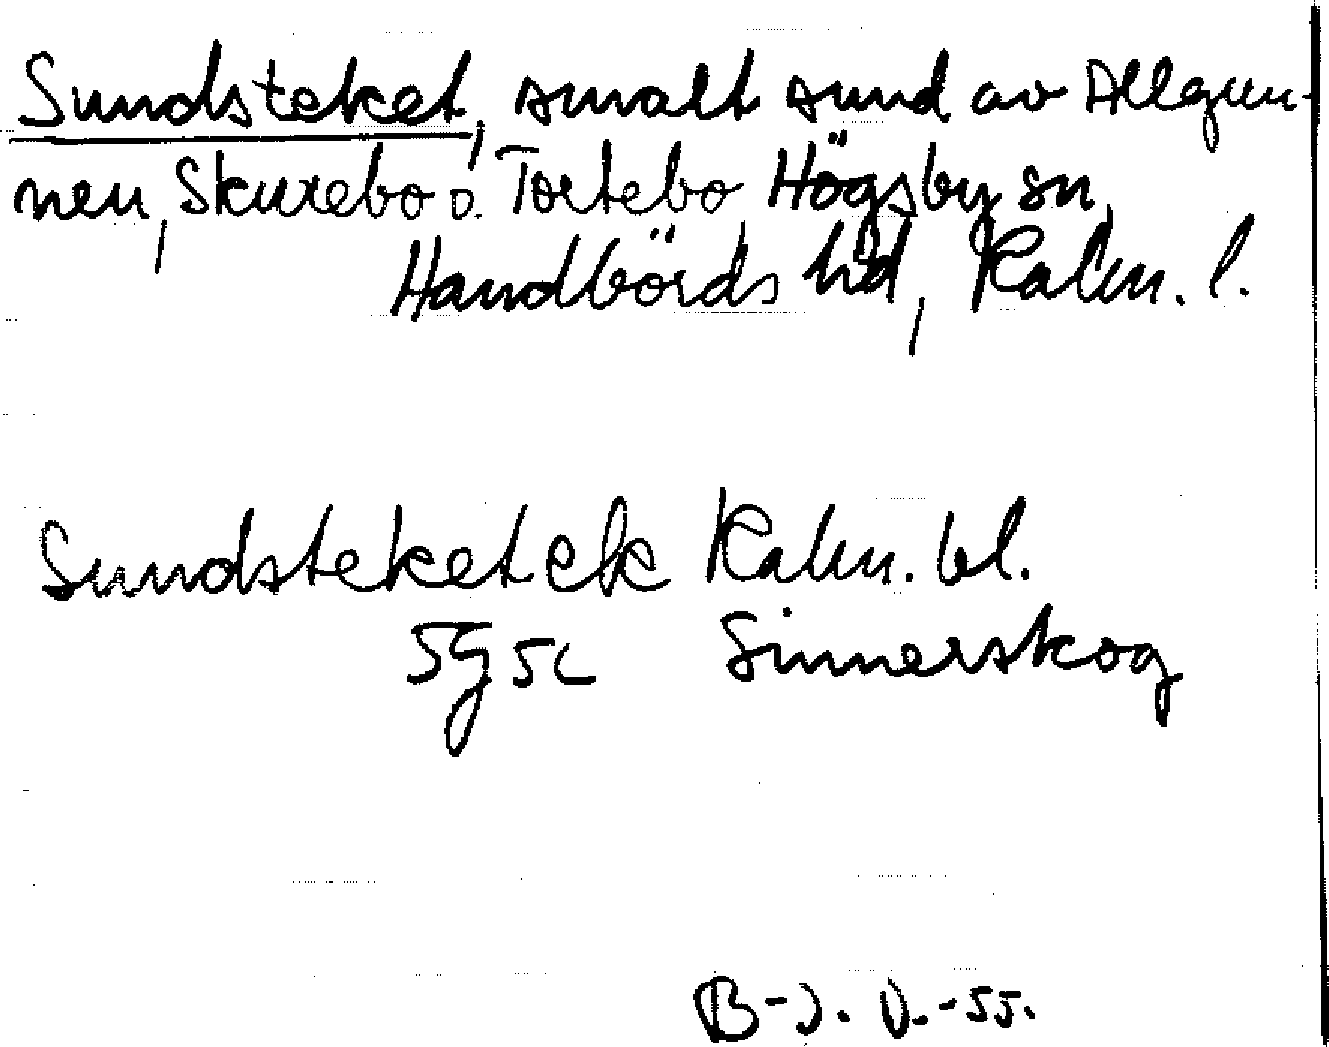 Sundsteket, smalt sund av Allgun-
nen, Skurebo o. Tortebo Högsby sn,
Handbörds hd, Kalm. l.
Sundsteket ek Kalm. bl.
5g5c Sinnerskog
B-J. O. -55.